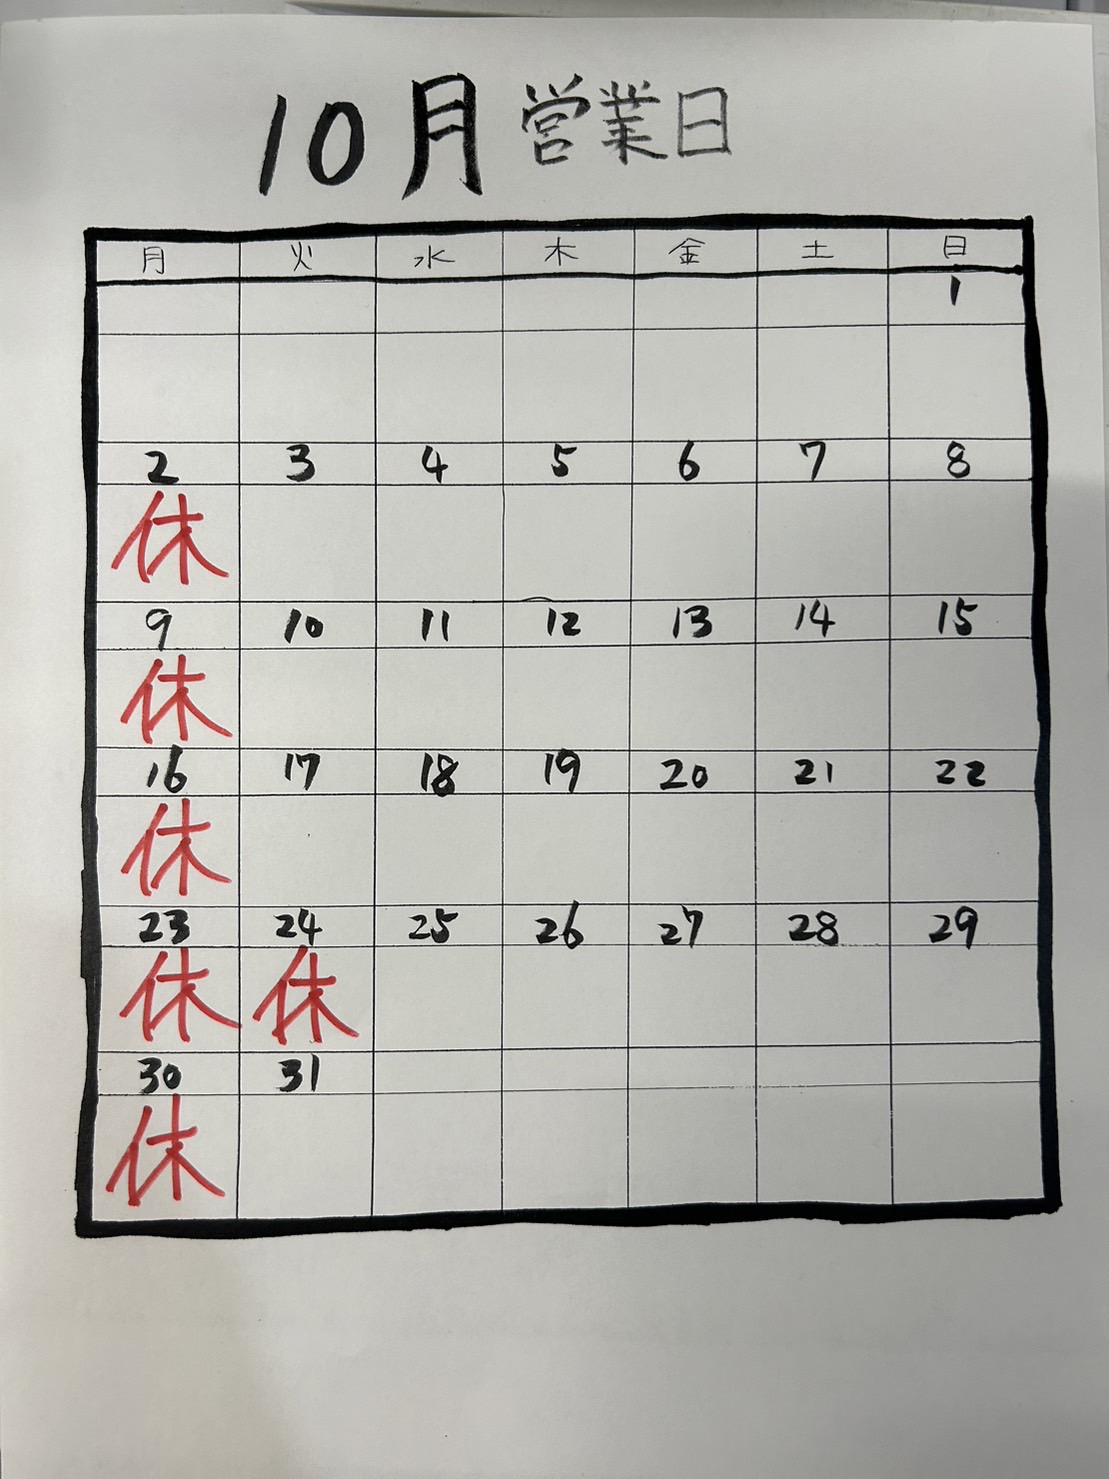 10月 営業日
月 火 水 木 金 土 日
1
2 3 4 5 6 7 8
休
9 10 11 12 13 14 15
休
16 17 18 19 20 21 22
休
23 24 25 26 27 28 29
休 休
30 31
休